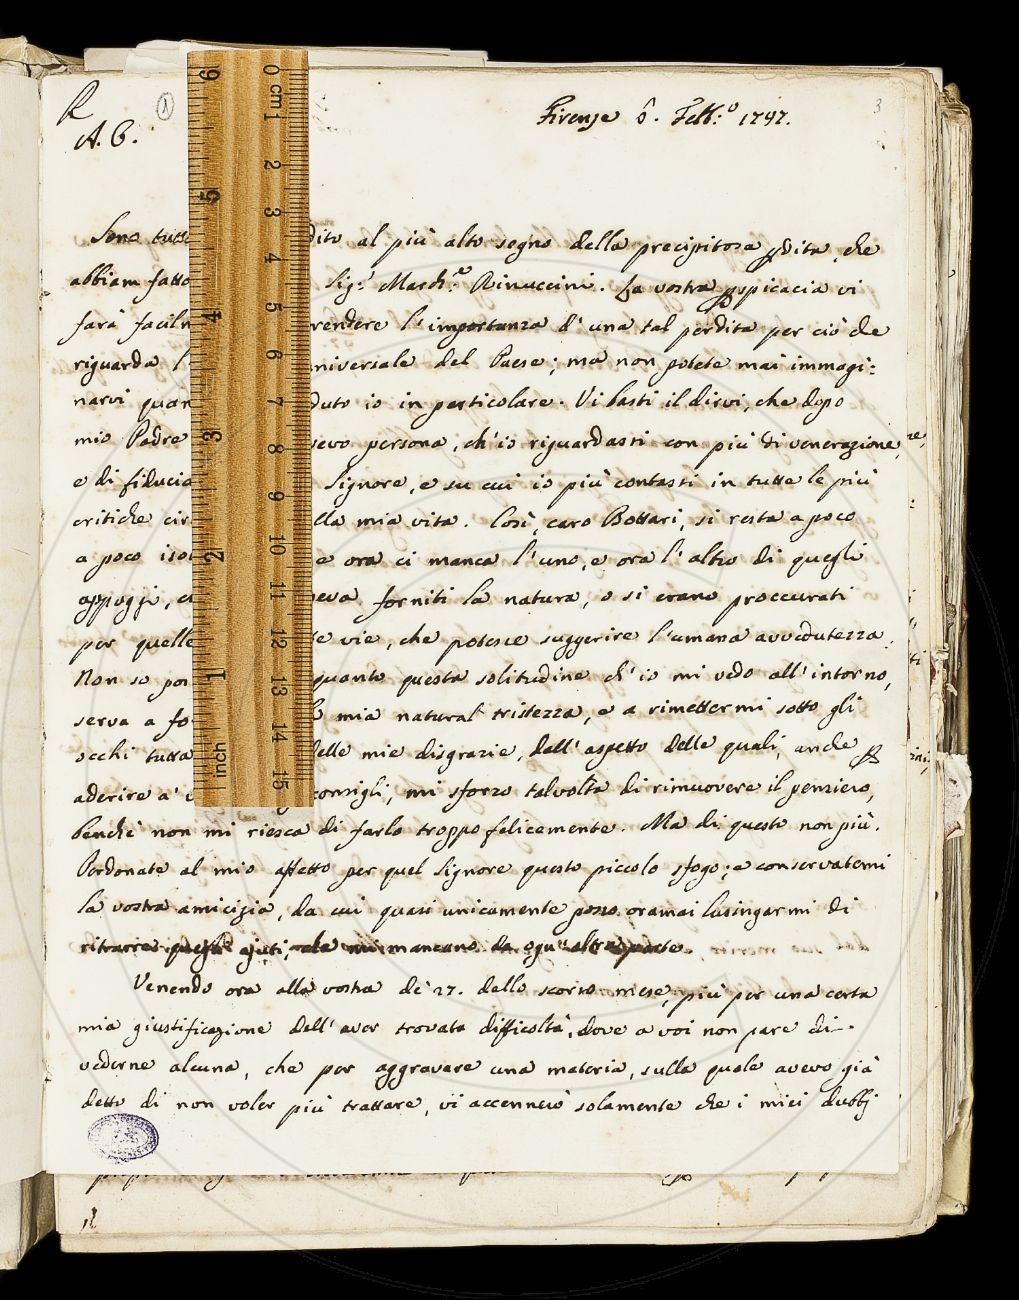 R
A. C.
1
3
Firenze 6. Febb:º 1747.
Sono tutto dito al più alto segno della precipitosa pdita, che
abbiam fatto Sig.r March.e Rinuccini. La vostra pspicacia vi
farà faciln rendere l'importanza d'una tal perdita per ciò che
riguarda l niversale del Paese; ma non potete mai immagi:
narvi quan duto io in particolare. Vi basti il dirvi, che dopo
mio Padre vevo persona, ch'io riguardasti con più di venerazione,
e di fiducia Signore, e su cui io più contasti in tutte le più
critiche cir lla mia vita. Così, caro Bottari, si resta a poco
a poco isol e ora ci manca l'uno, e ora l'altro di quegli
appoggi, c veva forniti la natura, o si erano proccurati
per quelle e vie, che potesse suggerire l'umana avvedutezza.
Non so por quanto questa solitudine ch'io mi vedo all'intorno,
serva a fo mia natural tristezza, e a rimettermi sotto gli
occhi tutta delle mie disgrazie, dall'aspetto delle quali, anche p
aderire a' consigli, mi sforzo talvolta di rimuovere il pensiero,
benchè non mi riesca di farlo troppo felicemente. Ma di questo non più.
Perdonate al mio affetto per quel Signore questo piccolo sfogo; e conservatemi
la vostra amicizia, da cui quasi unicamente posso oramai lusingarmi di
ritrarre quegli ajuti, che mi mancano da ogn'altra parte.
Venendo ora alla vostra de' 27. dello scorso mese, più per una certa
mia giustificazione dell'aver trovata difficoltà, dove a voi non pare di
vederne alcuna, che per aggravare una materia, sulla quale avevo già
detto di non voler più trattare, vi accennerò solamente che i miei dubbj
0 cm 1 2 3 4 5 6 7 8 9 10 11 12 13 14 15
inch 1 2 3 4 5 6